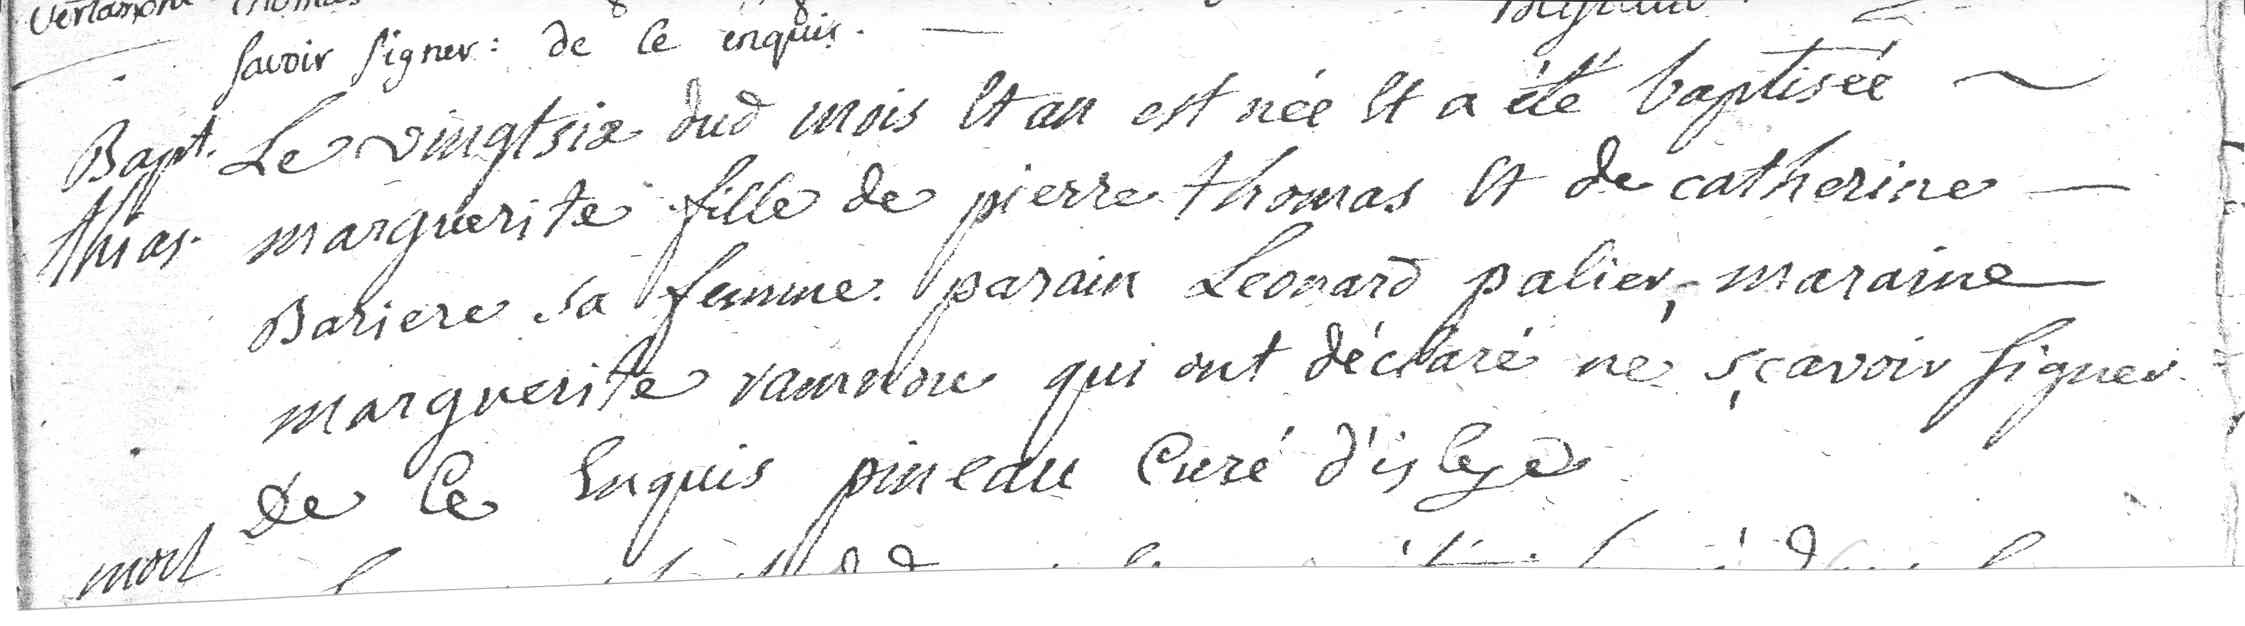 savoir signer : de ce enquis.
Bapt. Le vingtsix dud mois et an est née et a été baptisée
thias. marguerite fille de pierre thomas et de catherine
Bariere sa femme. parain Leonard palier, maraine
marguerite qui ont déclaré ne sçavoir signer
De ce Enquis pineau Curé d'isle
mort